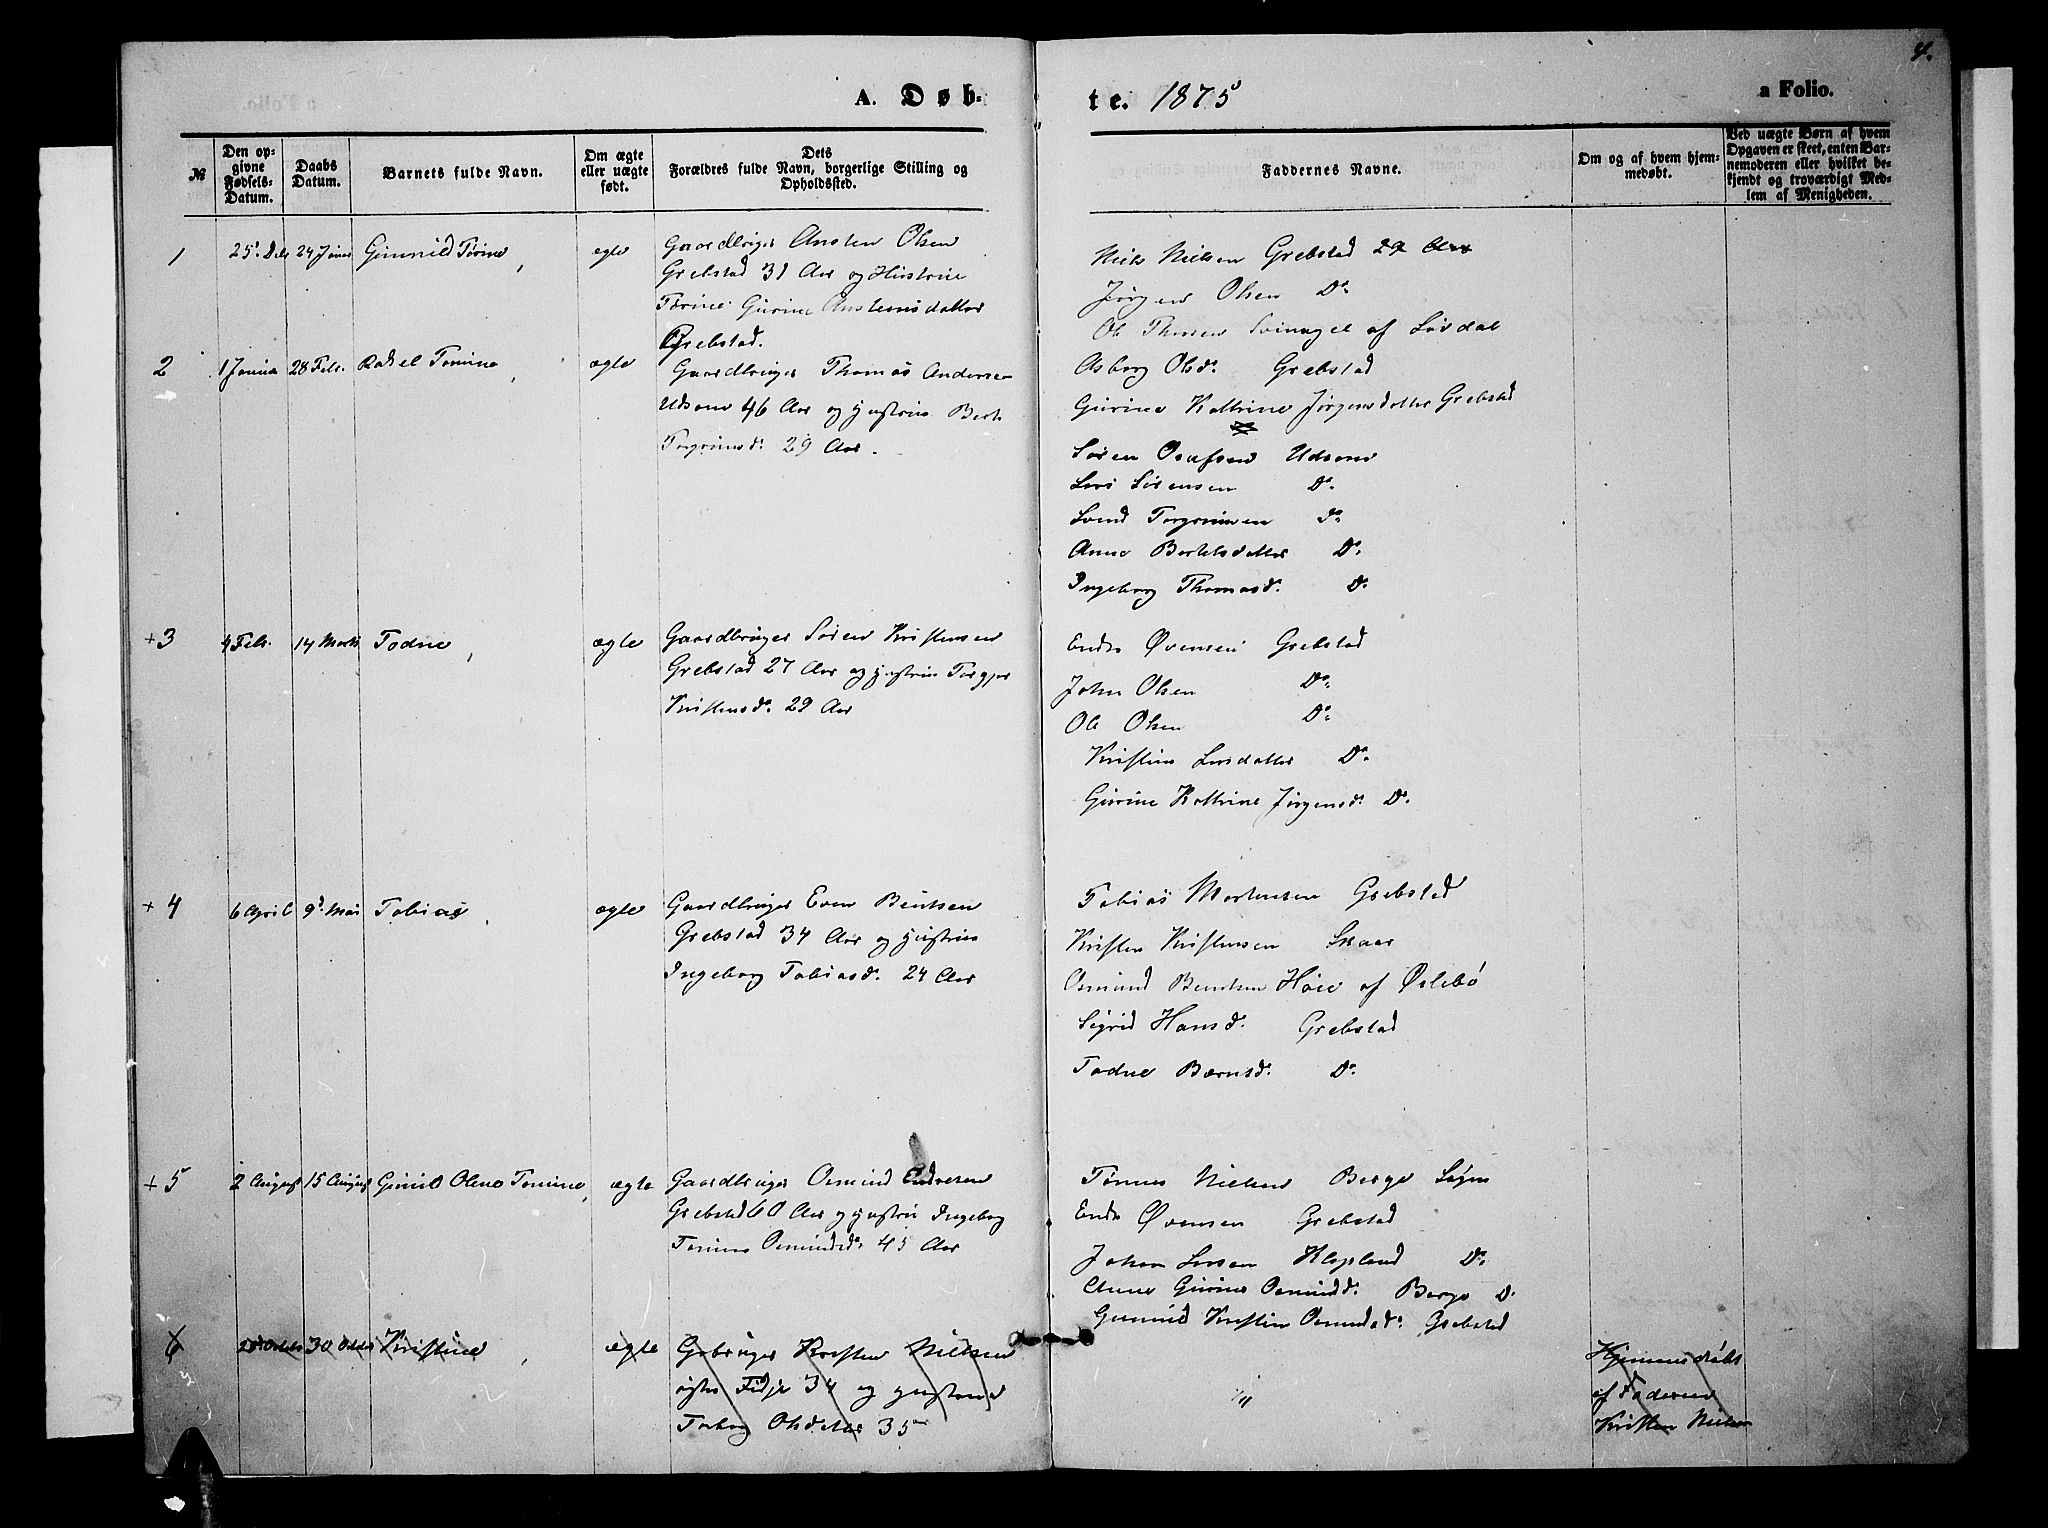 4.
A. Døb-
te. 1875
a Folio.
№
Den op-
givne
Fødsels-
Datum.
Daabs
Datum.
Barnets fulde Navn.
Om ægte
eller uægte
født.
Dets
Forældres fulde Navn, borgerlige Stilling og
Opholdssted.
Faddernes Navne.
Om og af hvem hjem-
medøbt.
Ved uægte Børn af hvem
Opgaven er skeet, enten Bar-
nemoderen eller hvilket be-
kjendt og troværdigt Med-
lem af Menigheden.
1
24
Gunnild Tørine
egte
Gaardbruger Ansten Olsen
Grebstad 31 Aar og Hustrue
Tørine Gurine Anstensdatter
Grebstad.
Niels Nielsen Grebstad 29 Aar
Jørgen Olsen Do
Ole af
2
1 Janua
28 Febr.
Rakel Tomine
ægte
Gaardbruger Thomas Andersen
46 Aar og Hustrue Berte
Torgrimsd. 29 Aar.
Asborg Olsd. Grebstad
Gurine Kattrine Jørgensdatter Grebstad
Søren
Lars Sørensen Do
Svend Torgrimsen Do
Anne Bertelsdatter Do
Ingeborg Thomasd. Do
+3
4 Febr.
14 Marts
Todne
ægte
Gaardbruger Søren Kristensen
Grebstad 27 Aar og Hustrue Torgjer
Kristensd. 29 Aar
Endre Øvensen Grebstad
John Olsen Do
Ole Olsen Do
Kirstine Larsdatter Do
Gurine Kattrine Jørgensd. Do
+4
6 April
9d Mai
Tobias
ægte
Gaardbruger Even Bentsen
Grebstad 34 Aar og Hustrue
Ingeborg Tobiasd. 24 Aar
Tobias Mortensen Grebstad
Kristen Kristensen Skaar
Osmund Bentsen Høie af Øslebø
Sigrid Hansd. Grebstad
Todne Do
+5
2 August
15 August
Gunild Olene Tomine
ægte
Gaardbruger Osmund Endresen
Grebstad 60 Aar og Hustrue Ingeborg
Tomine Osmundsd. 45 Aar
Tønnes Nielsen Berge Søgne
Endre Øvensen Grebstad
Johan Larsen Do
Anne Gurine Osmundd. Berge Do
Gunnild Kirstine Osmundsd. Grebstad
6
30 Octbr
Kristine
ægte
Gbruger Kristen Nielsen
Fidje 34 og Hustrue
Torborg Olsdatter 35
Hjemmedøbt
af Faderen
Kristen Nielsen